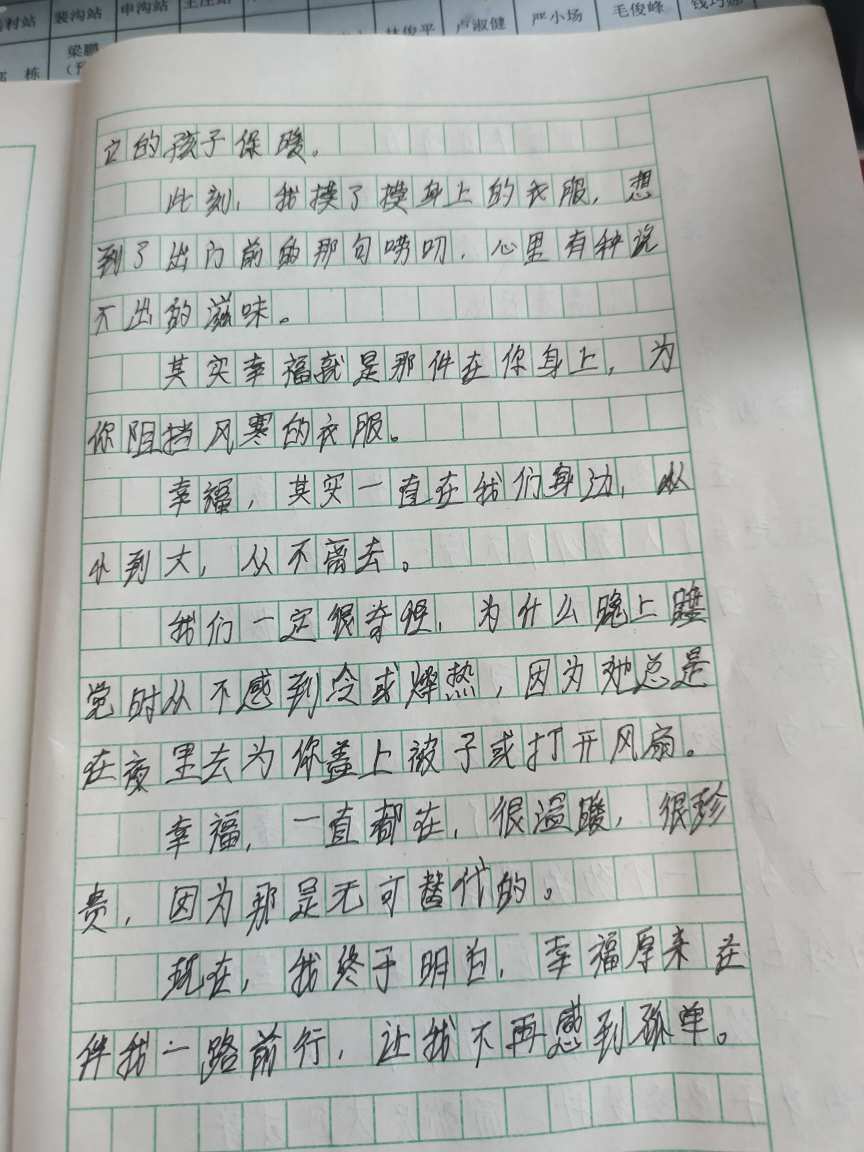 村站 裴沟站 申沟站
栋 梁鹏 林俊平 卢淑健 严小场 毛俊峰
它的孩子保暖。
此刻,我摸了摸身上的衣服,想
到了出门前的那句唠叨,心里有种说
不出的滋味。
其实幸福就是那件在你身上,为
你阻挡风寒的衣服。
幸福,其实一直在我们身边,从
小到大,从不离去。
我们一定很奇怪,为什么晚上睡
觉时从不感到冷或燥热,因为她总是
在夜里去为你盖上被子或打开风扇。
幸福,一直都在,很温暖,很珍
贵,因为那是无可替代的。
现在,我终于明白,幸福原来在
伴我一路前行,让我不再感到孤单。